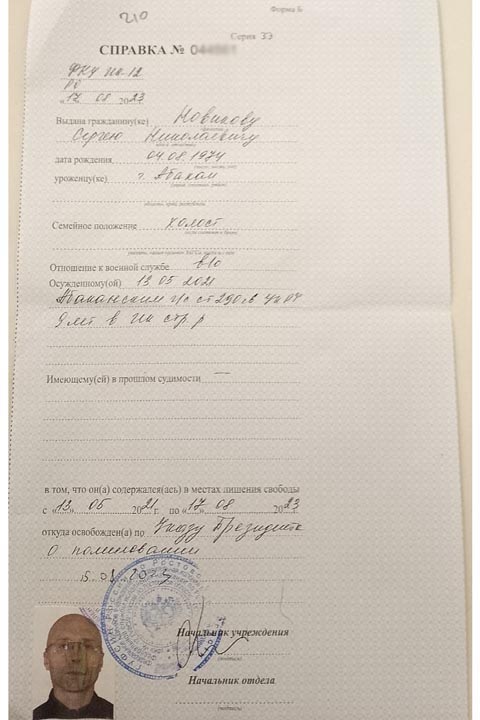 210
Форма Б
Серия ЗЭ
СПРАВКА №
ФКУ ИК-12
РО
«17» 08 2023
Выдана гражданину(ке) Новикову
Сергею Николаевичу
дата рождения 04.08.1974
уроженцу(ке) г. Абакан
Семейное положение холост
Отношение к военной службе в/о
Осужденному(ой) 13 05 2021
Абаканским г/с ст 290 ч 4
9 лет в ИК стр. р
Имеющему(ей) в прошлом судимости —
в том, что он(а) содержался(ась) в местах лишения свободы
с «13» 05 2021 г. по «17» 08 2023
откуда освобожден(а) по Указу Президента
О помиловании
Начальник учреждения
(подпись)
Начальник отдела
(подпись)